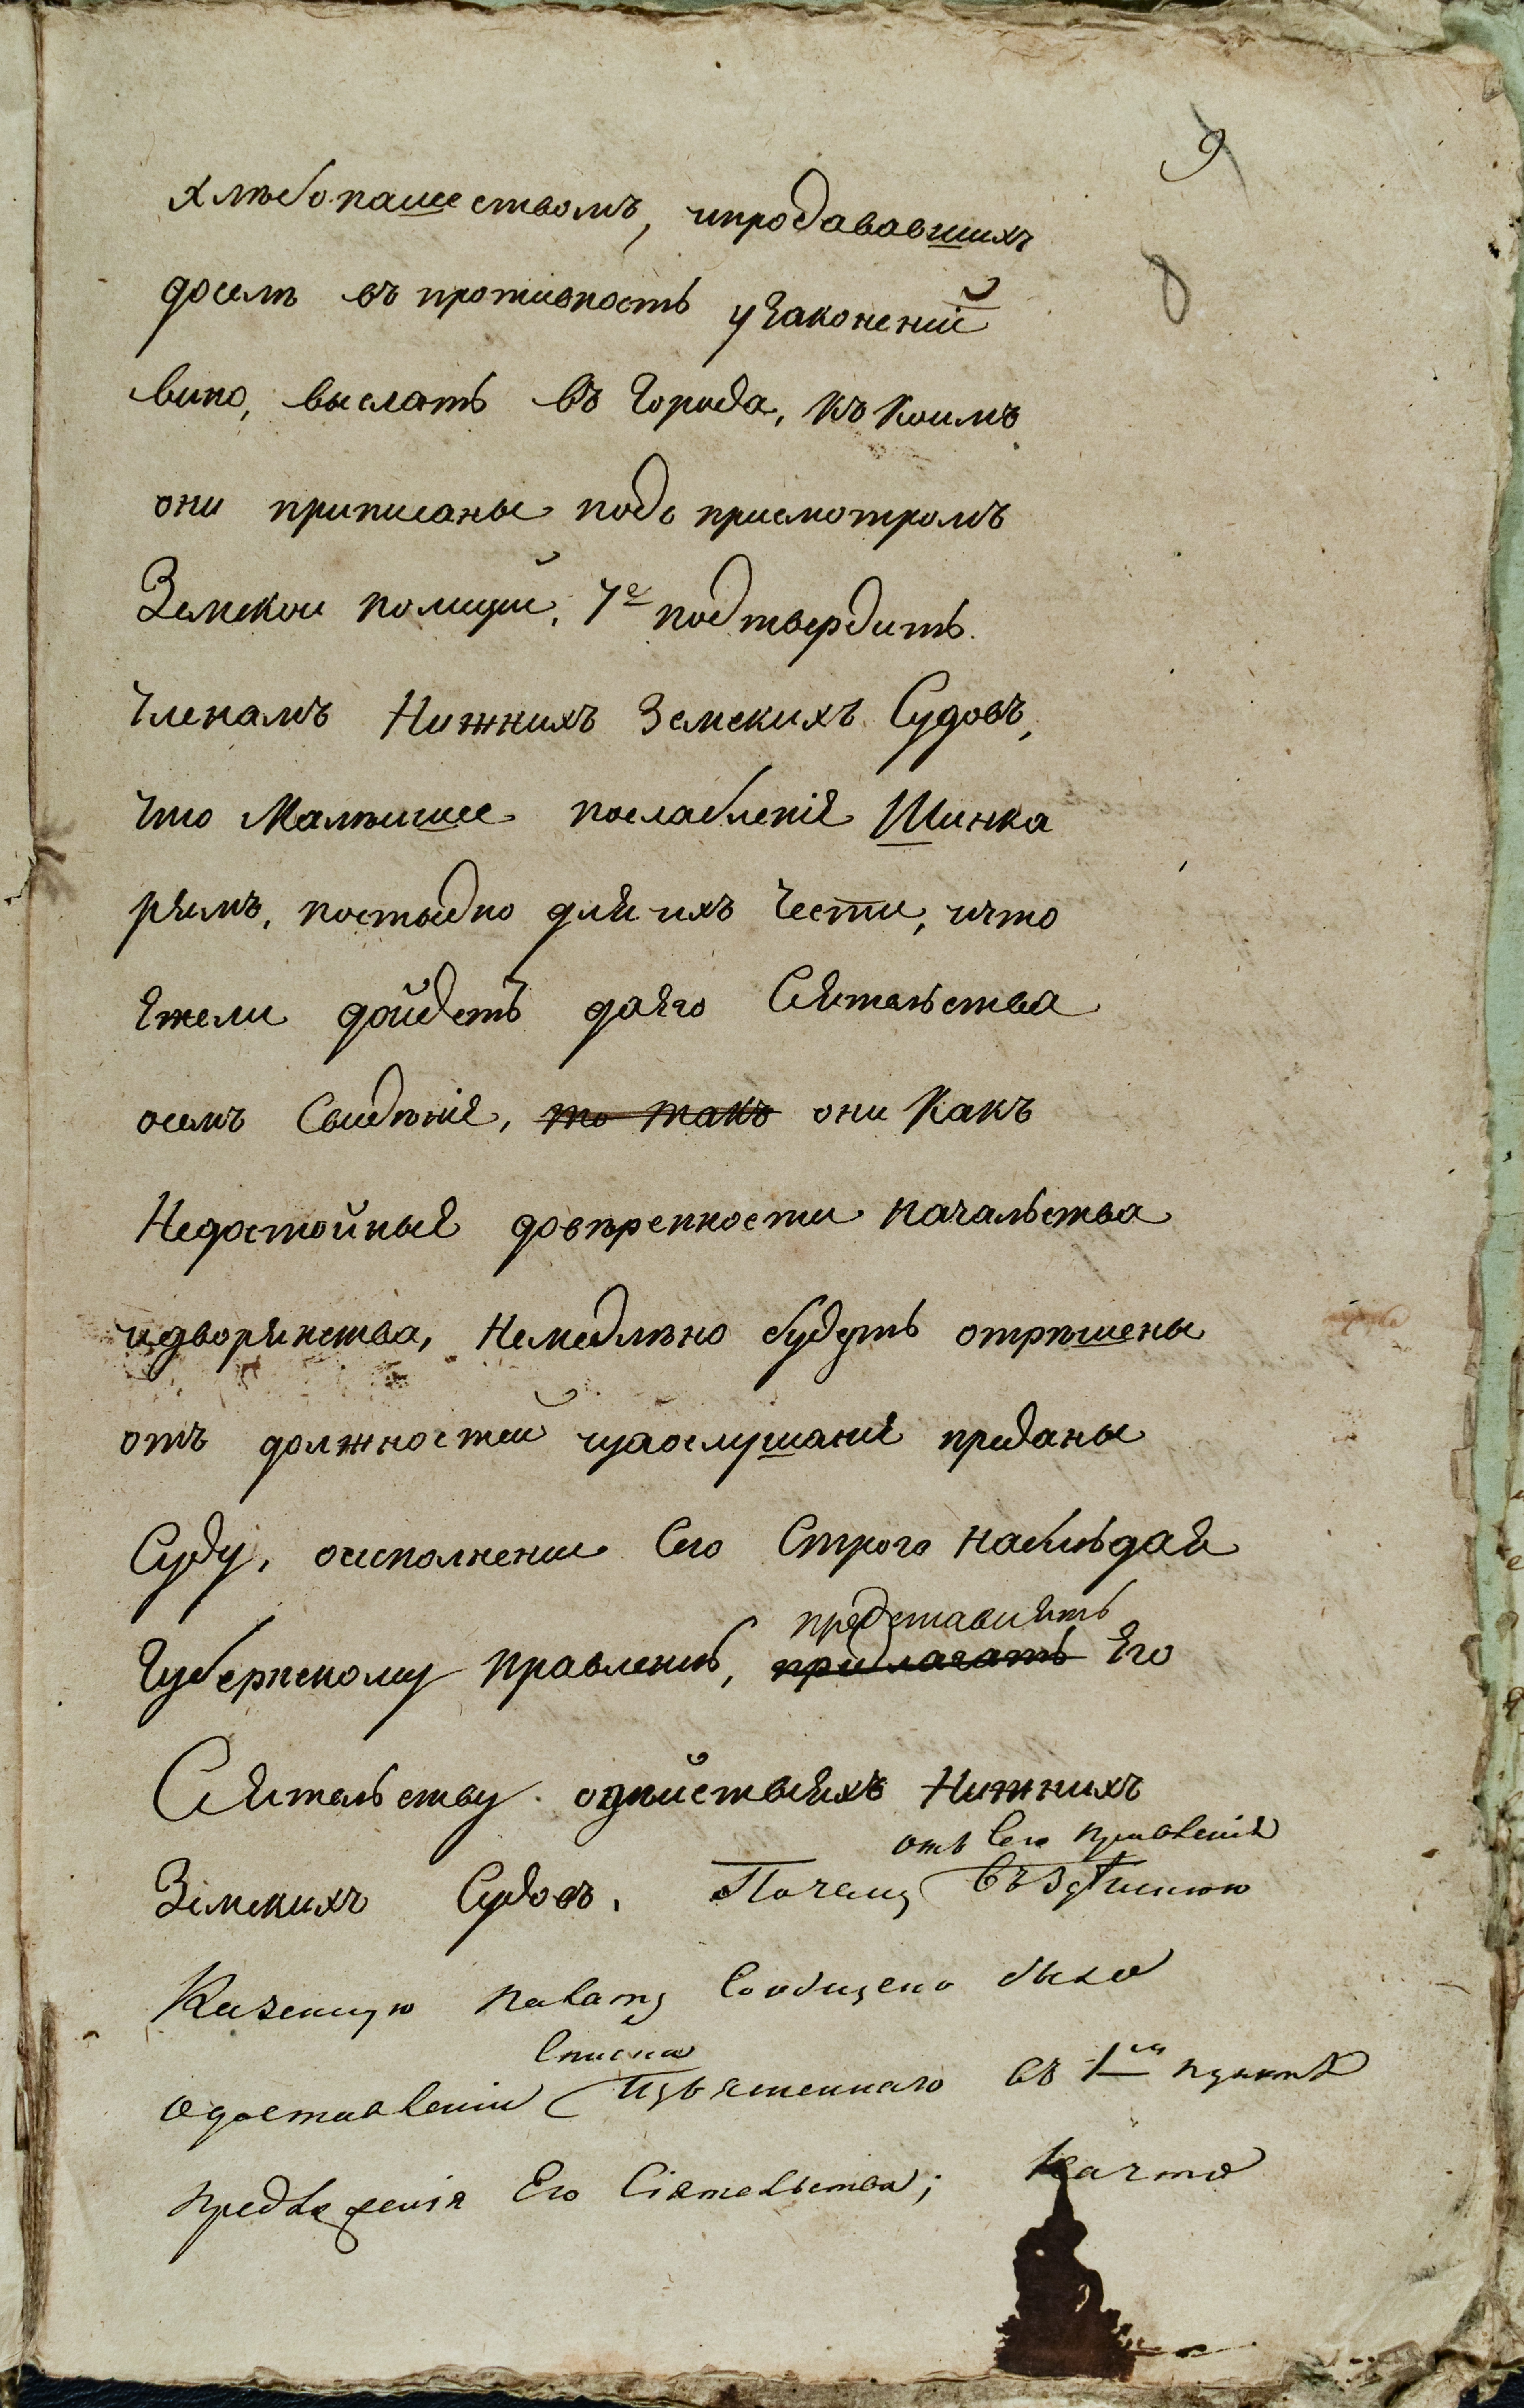 9
8
хлѣбопашествомъ, ипродававшихъ
доселѣ въ противность узаконений
вино, выслать въ Города, къ коимъ
они приписаны подъ присмотромъ
Земской полиции, 7е подтвердить
членамъ Нижнихъ Земскихъ Судовъ,
что Малѣишее послабление Шинка
рямъ, постыдно для ихъ чести, ичто
Ежели дойдетъ доЕго Сиятельства
осемъ Свидѣние, то такъ они какъ
Недостойные довѣренности начальства
идворянства, Немедлѣно будутъ отрѣшены
отъ должностей изаослушание преданы
Суду, оисполнении Сего Строго наблюдая
представлять
Губернскому правлению, предлагать Его
Сиятельству одѣйствияхъ Нижнихъ
отъ Сего правления
Земскихъ Судовъ. Почему Въздѣшнюю
Казенную палату Сообщено было
Списка
одоставлении Изъясненнаго въ 1мъ пунктѣ
предложения Его Сіятельства; Начто